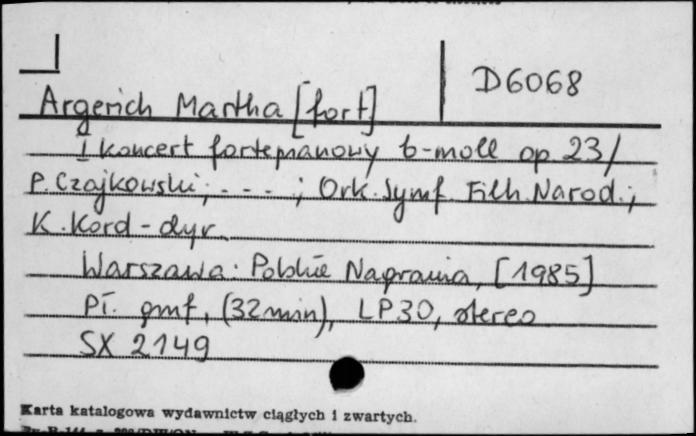 D6068
Argerich Martha [fort]
I koncert fortepianowy b-moll op 23/
P. Czajkowski; - - - ; Ork. Symf. Filh. Narod.;
K. Kord - dyr.
Warszawa: Polskie Nagrania, [1985]
Pł. gmf, (32 min), LP30, stereo
SX 2149
Karta katalogowa wydawnictw ciągłych i zwartych.